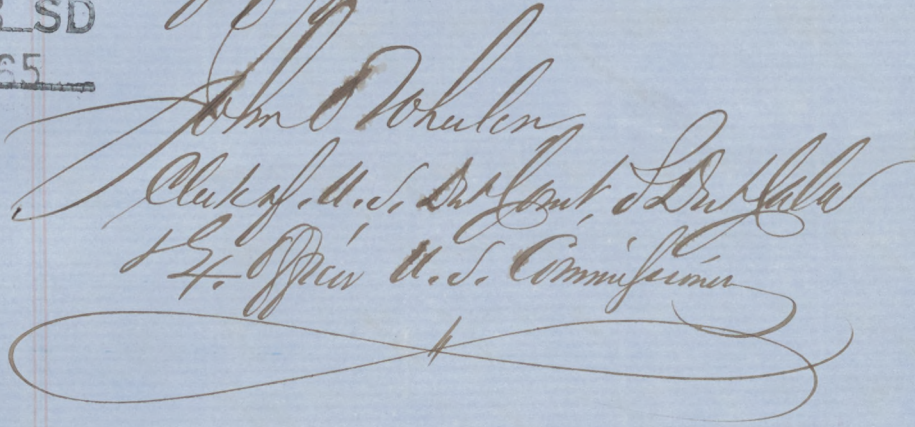 SD
65
John Wheelen
Clerk of U.S. Dist Court, S Dist Cala
& Ex. Officio U.S. Commissioner